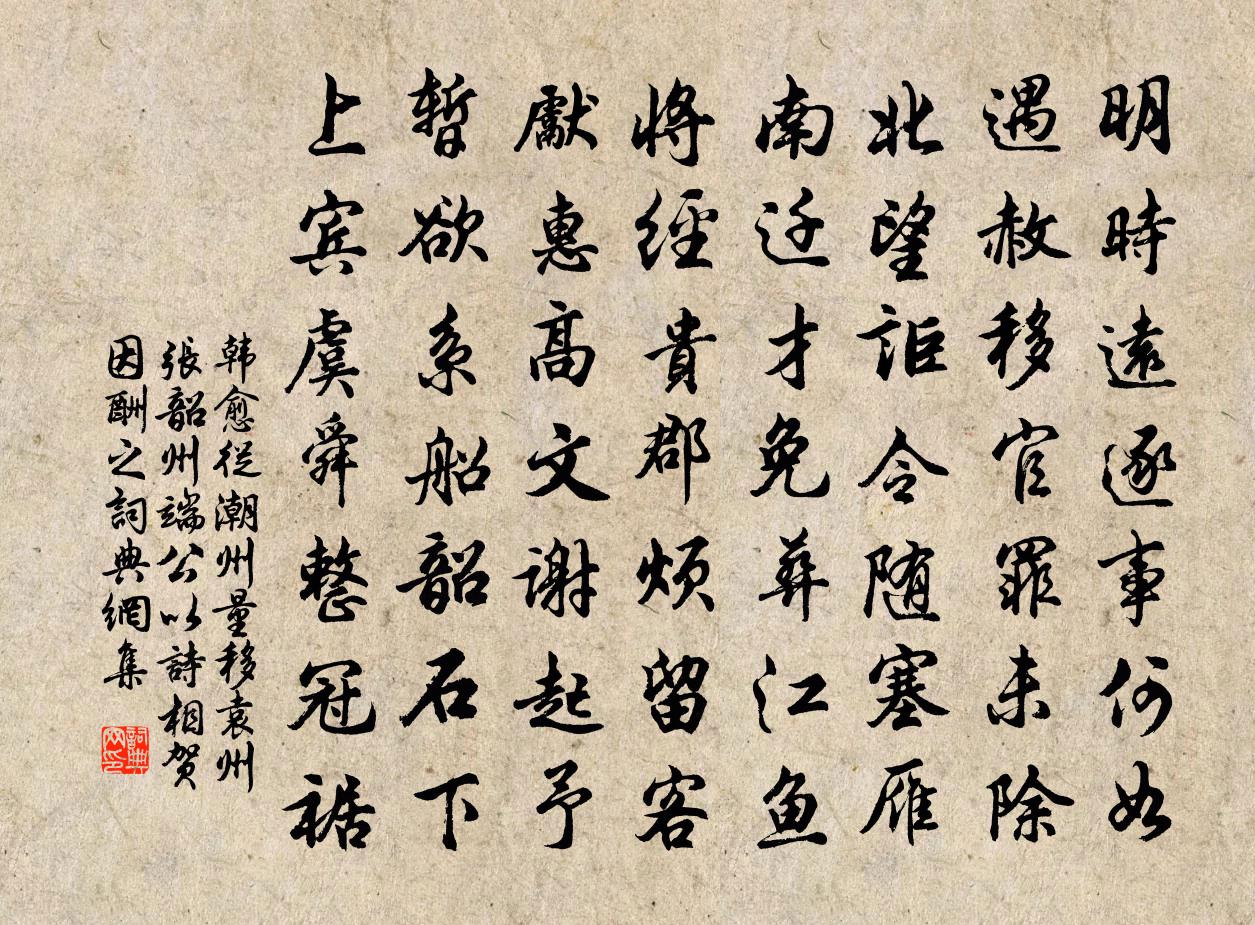 明時遠逐事何如
遇赦移官罪未除
北望詎令随塞雁
南迁才免葬江鱼
將經貴郡煩留客
獻惠高文謝起予
暫欲系船韶石下
上宾虞舜整冠裾
韩愈從潮州量移袁州
張韶州端公以詩相贺
因酬之詞典網集
詞典
网印